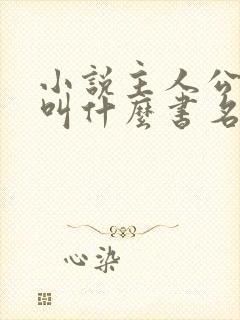 小說主人公
叫什麼書名
心染